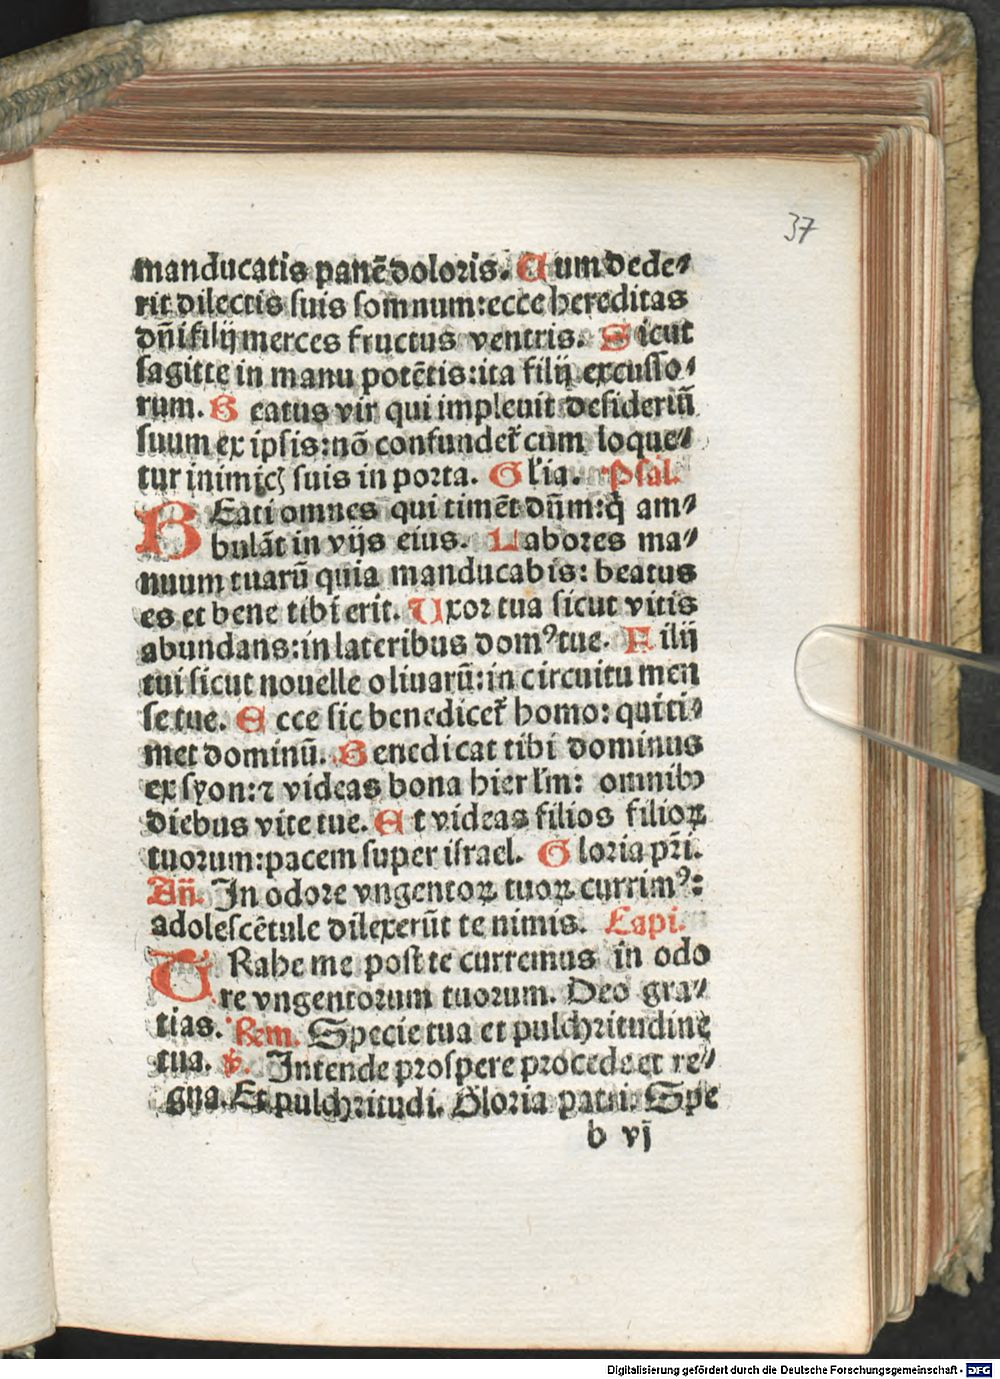 37
manducatis panē doloris. Cum dede⸗
rit dilectis suis somnum: ecce hereditas
dn̄i filij merces fructus ventris. Sicut
sagitte in manu potētis: ita filij excusso⸗
rum. Beatus vir qui impleuit desideriū
suum ex ipsis: nō confundet᷑ cum loque⸗
tur inimicꝭ suis in porta. Gl'ia. Psal.
BEati omnes qui timēt dn̄m: q̄ am⸗
bulāt in vijs eius. Labores ma⸗
nuum tuarū quia manducabis: beatus
es et bene tibi erit. Uxor tua sicut vitis
abundans: in lateribus domꝰ tue. Filij
tui sicut nouelle oliuarū: in circuitu men
se tue. Ecce sic benedicet᷑ homo: qui ti⸗
met dominū. Benedicat tibi dominus
ex syon: ⁊ videas bona hierl'm: omnibꝰ
diebus vite tue. Et videas filios filioꝝ
tuorum: pacem super israel. Gloria pr̄i.
Añ. In odore vngentoꝝ tuoꝝ currimꝰ:
adolescētule dilexerūt te nimis. Capi.
TRahe me post te curremus in odo
re vngentorum tuorum. Deo gra⸗
tias. Rem. Specie tua et pulchritudine
tua. ℣. Intende prospere procede et re⸗
gna. Et pulchritudi. Gloria patri. Spe
b vj
Digitalisierung gefördert durch die Deutsche Forschungsgemeinschaft - DFG